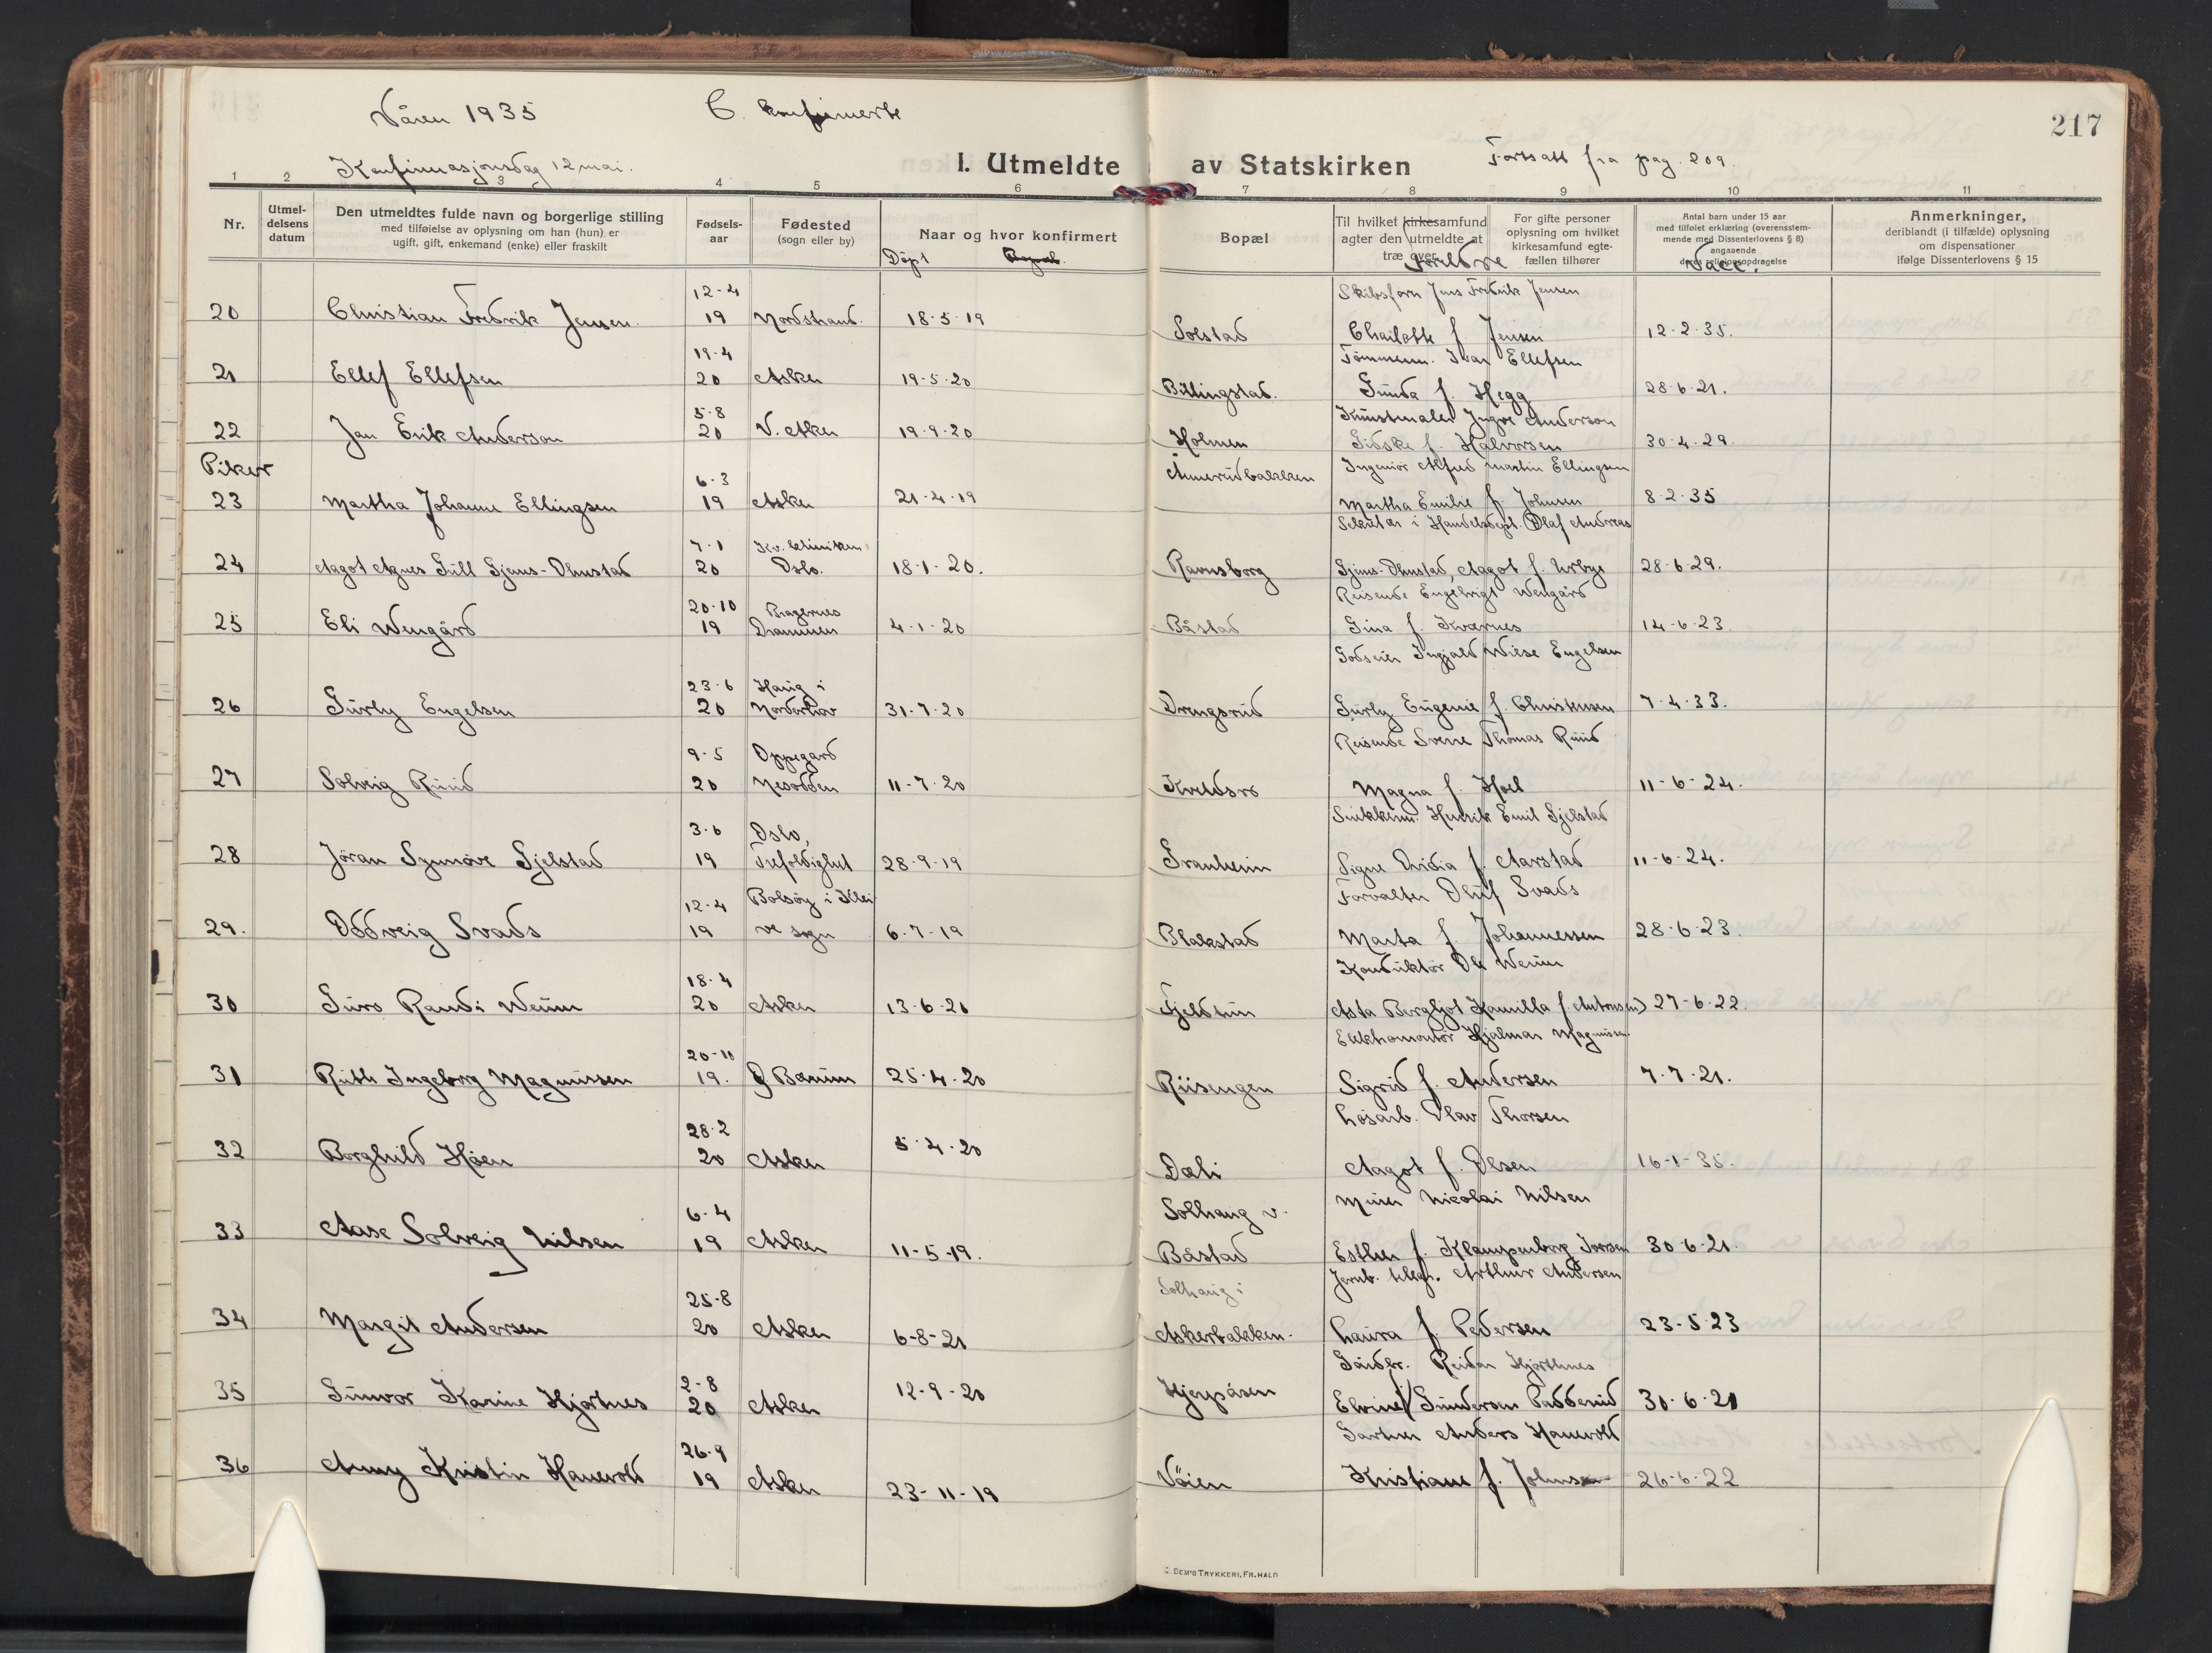 Våren 1935 C. konfirmerte
217
Konfirmasjonsdag 12 mai.
I. Utmeldte av Statskirken
Fortsatt fra pag. 209.
1 2 3 4 5 6 7 8 9 10 11
Nr.
Utmel-
delsens
datum
Den utmeldtes fulde navn og borgerlige stilling
med tilføielse av oplysning om han (hun) er
ugift, gift, enkemand (enke) eller fraskilt
Fødsels-
aar
Fødested
(sogn eller by)
Naar og hvor konfirmert
Døpt
Bopæl
Til hvilket kirkesamfund
agter den utmeldte at
træ over
Foreldre
For gifte personer
oplysning om hvilket
kirkesamfund egte-
fællen tilhører
Antal barn under 15 aar
med tilføiet erklæring (overensstem-
mende med Dissenterlovens § 8)
angaaende
deres religionsopdragelse
Vacc.
Anmerkninger,
deriblandt (i tilfælde) oplysning
om dispensationer
ifølge Dissenterlovens § 15
12-4 Skibsførr Jens Fredrik Jensen
20 Christian Fredrik Jensen. 19 Nordstrand. 18-5-19 Solstad Charlotte f Jensen 12-2-35.
19-4 Tømmerm. Ivar Ellefsen
21 Ellef Ellefsen 20 Asker 19-5-20 Billingstad. Gunda f. Hegg 28-6-21.
5-8 Kunstmaler Ingvr Anderson
22 Jan Erik Anderson 20 V. Asker 19-9-20 Holmen Sidske f. Halvorsen 30-4-29.
Piker
6-3 Annerudbakken Ingeniør Alfred Martin Ellingsen
23 Martha Johanne Ellingsen 19 Asker 21-4-19 Martha Emilie f. Johnsen 8-2-35
7-1 Kv. klinikken Sekretær i Handelsdept. Olaf Andreas
24 Aagot Agnes Gull Gjems-Onstad 20 Oslo. 18-1-20. Ravnsborg Gjems-Onstad, Aagot f. Urbye 28-6-29.
20-10 Bragernes Reisende Engelbrigt Wengård
25 Eli Wengård 19 Drammen 4-1-20 Båstad Gina f. Kværnes 14-6-23.
Godseier Ingjald Wiese Engelsen
23-6 Haug i
26 Gurly Engelsen 20 Norderhov 31-7-20 Drengsrud Gurly Eugenie f. Christensen 7-4-33.
9-5 Oppegård Reisende Sverre Thomas Ruud
27 Solveig Ruud 20 Nesodden 11-7-20 Kveldsro Magna f. Hoel 11-6-24.
3-6 Oslo, Snekkerm. Henrik Emil Gjelstad
28 Jøran Synnøve Gjelstad 19 Trefoldighet 28-9-19 Granheim Signe Ovidia f. Aarstad 11-6-24.
12-4 Bolsøy i Klei Forvalter Oluf Svads
29. Oddveig Svads 19 ve sogn 6-7-19 Blakstad Marta f. Johannessen 28-6-23.
18-4 Konduktør Ole Weum
30 Guro Randi Weum 20 Asker 13-6-20 Fjeldtun Asta Bergljot Kamilla f. Antonsen) 27-6-22.
20-11 Elektromontør Hjalmar Magnussen
31 Ruth Ingeborg Magnussen 19. Ø Bærum 25-4-20 Riisengen Sigrid f. Andersen 7-7-21.
28-2 Løsarb. Olav Thorsen
32 Borghild Høen 20 Asker 5-4-20 Dæli Aagot f. Olsen 16-1-35.
6-4 Solhaug v. Murer Nicolai Nilsen
33 Aase Solveig Nilsen 19 Asker 11-5-19. Båstad Esther f. Klampenborg Iversen 30-6-21.
25-8 Solhaug i Jernb. telegr. Arthur Andersen
34 Margit Andersen 20 Asker 6-8-21 Askerbakken. Laura f. Pedersen 23-5-23
2-8 Gårdbr. Reidar Hjørthnes
35 Gunvor Karine Hjørtnes 20 Asker 12-9-20 Hjerpåsen Elvine f Gundersen Padderud 30-6-21
26-9 Gartner Anders Hanevold
36 Anny Kristin Hanevold 19 Asker 23-11-19 Vøien Kristiane f. Johnsen 26-6-22
E. SEM'S TRYKKERI, FR.HALD